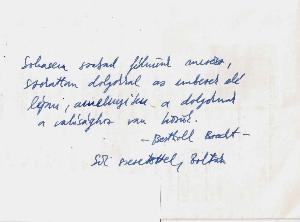 Sohasem szabad félnünk merész,
szokatlan dolgokkal az emberek elé
lépni, amennyiben a dolgoknak
a valósághoz van közük.
- Berthold Brecht -
szeretettel, Zoltán